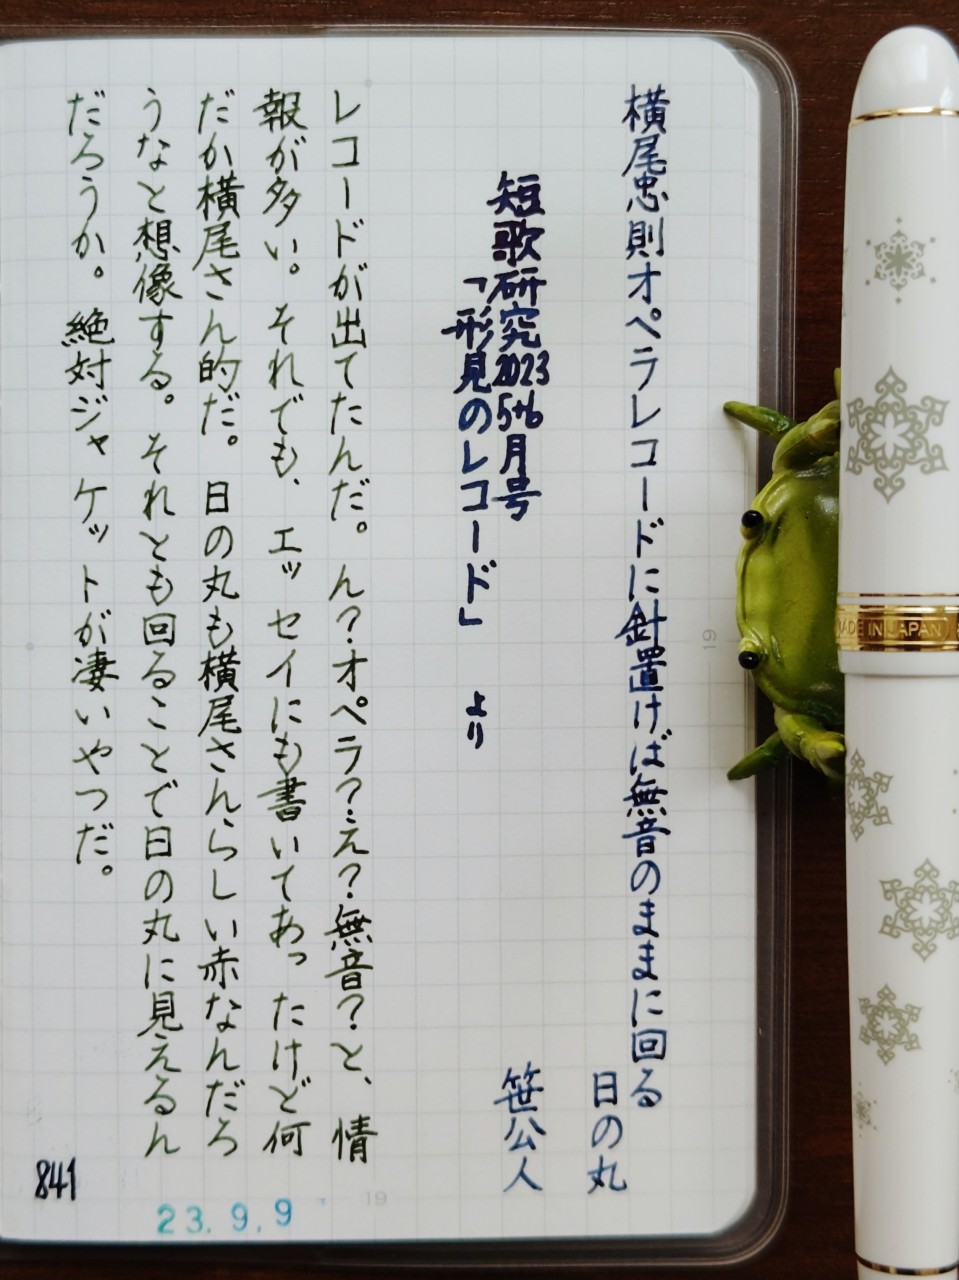 横尾忠則オペラレコードに針置けば無音のままに回る
日の丸
笹公人
短歌研究2023 5+6月号
「形見のレコード」 より
レコードが出てたんだ。ん?オペラ?え?無音?と、情
報が多い。それでも、エッセイにも書いてあったけど何
だか横尾さん的だ。日の丸も横尾さんらしい赤なんだろ
うなと想像する。それとも回ることで日の丸に見えるん
だろうか。絶対ジャケットが凄いやつだ。
841
23.9.9
19
19
MADE IN JAPAN